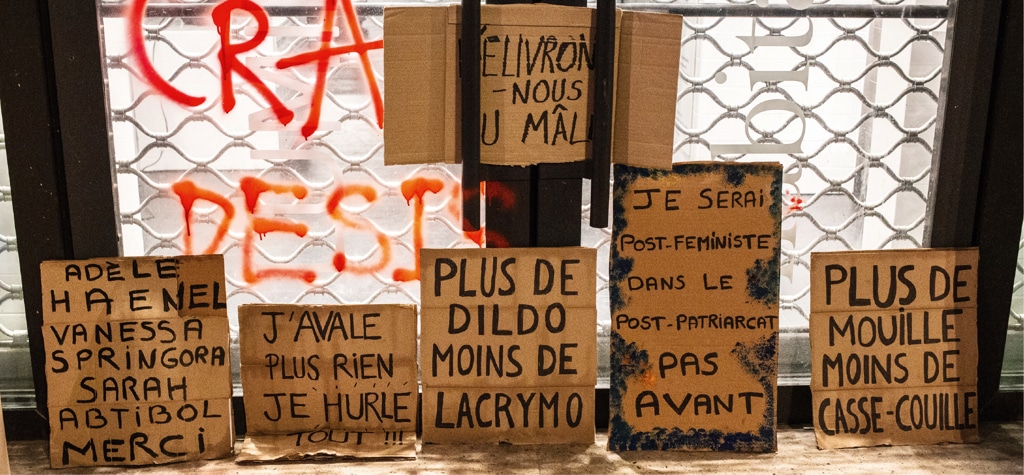 CRA
DESIS
DÉLIVRON
-NOUS
DU MÂLE
ADÈLE
HAENEL
VANESSA
SPRINGORA
SARAH
ABTIBOL
MERCI
J'AVALE
PLUS RIEN
JE HURLE
TOUT !!!
PLUS DE
DILDO
MOINS DE
LACRYMO
JE SERAI
POST-FEMINISTE
DANS LE
POST-PATRIARCAT
PAS
AVANT
PLUS DE
MOUILLE
MOINS DE
CASSE-COUILLE